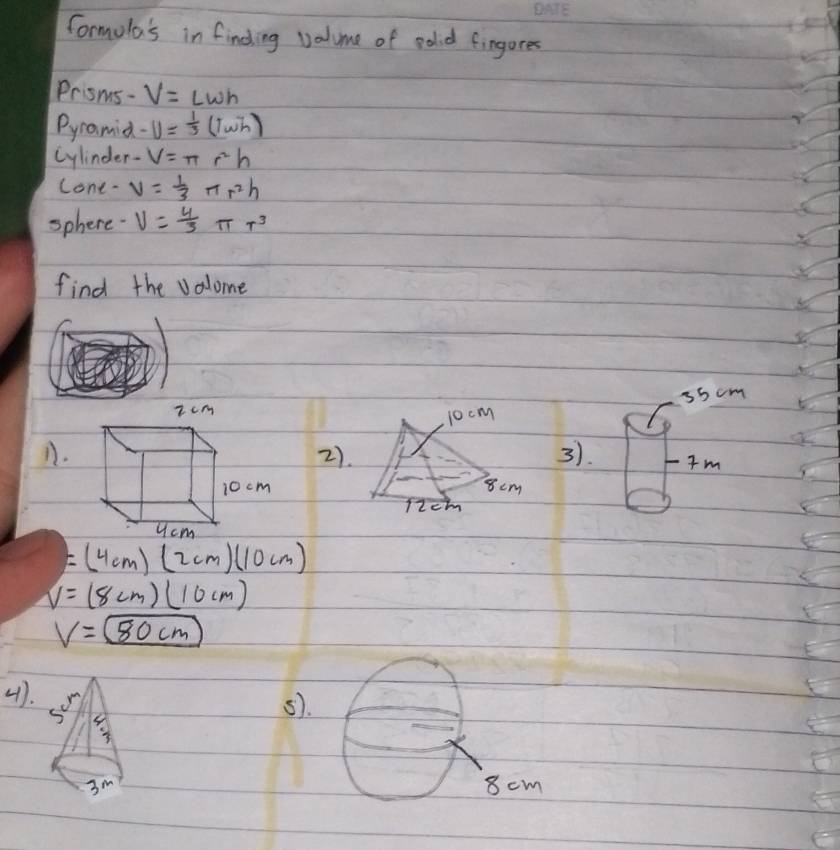 DATE
formula's in finding volume of solid fingures
Prisms - V = Lwh
Pyramid - V = 1/3 (lwh)
Cylinder - V = π r²h
Cone - V = 1/3 π r²h
sphere - V = 4/3 π r³
find the volume
1).
2cm
10cm
4cm
2).
10cm
8cm
12cm
3).
35cm
7m
= (4cm) (2cm)(10cm)
V = (8cm)(10cm)
V = 80cm
4).
5cm
4cm
3m
5).
8cm